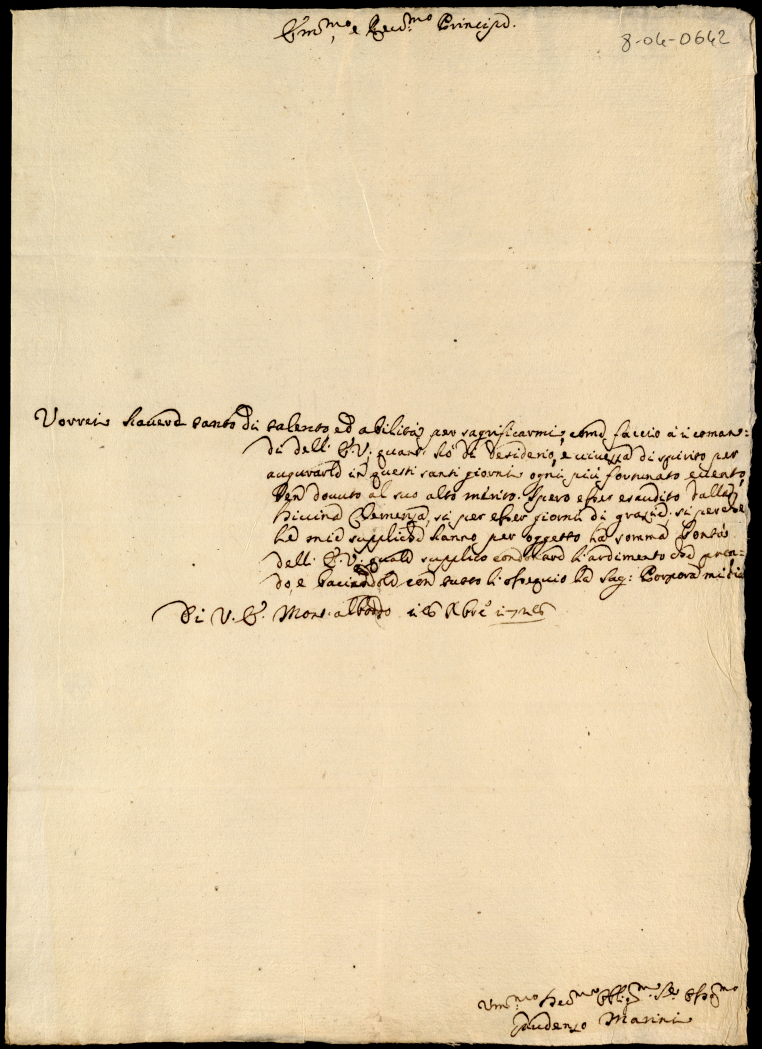 Em.mo, e Reu.mo Principe.
8-04-0642
Vorrei hauere tanto di talento ed abilità per sagrificarmi, come faccio a i coman:
di dell' E.V., quant' hò di desiderio, e viuezza di spirito per
augurarle in questi santi giorni ogni più fortunato euento,
ben douuto al suo alto merito. Spero esser esaudito dalla
Diuina Clemenza, si per esser giorni di grazie, si perche
le mie suppliche hanno per oggetto la somma bontà
dell' E.V., quale supplico condonare l'ardimento che pren-
do, e baciandole con tutto l'ossequio la Sag: Porpora mi dico
Di V.E. Mont' alboddo 16 Xbre 1716
Um.mo Deu.mo Oblig.mo Se.r Osseq.mo
Gaudenzo Marini